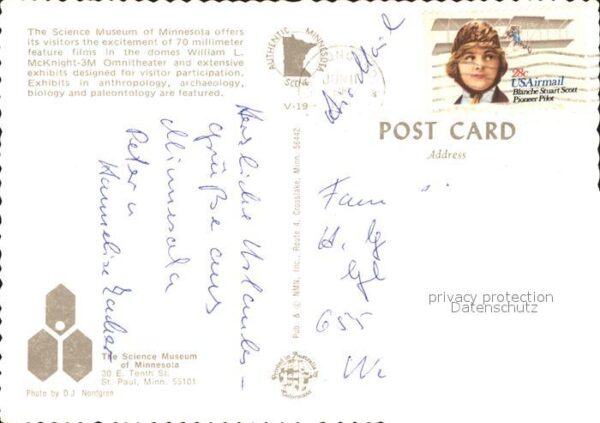 The Science Museum of Minnesota offers
its visitors the excitement of 70 millimeter
feature films in the domes William L.
McKnight-3M Omnitheater and extensive
exhibits designed for visitor participation.
Exhibits in anthropology, archaeology,
biology and paleontology are featured.
AUTHENTIC MINNESOTA
V-19
28c
USAirmail
Blanche Stuart Scott
Pioneer Pilot
Air Mail
POST CARD
Address
Herzliche Urlaubs-
grüße aus
Minnesota
Peter u
Hannelise
Pub. & © NMN, Inc., Route 4, Crosslake, Minn. 56442
Fam
H.
655
privacy protection
Datenschutz
The Science Museum
of Minnesota
30 E. Tenth St.
St. Paul, Minn. 55101
Photo by D.J. Nordgren
Printed in Australia by
Colorscans